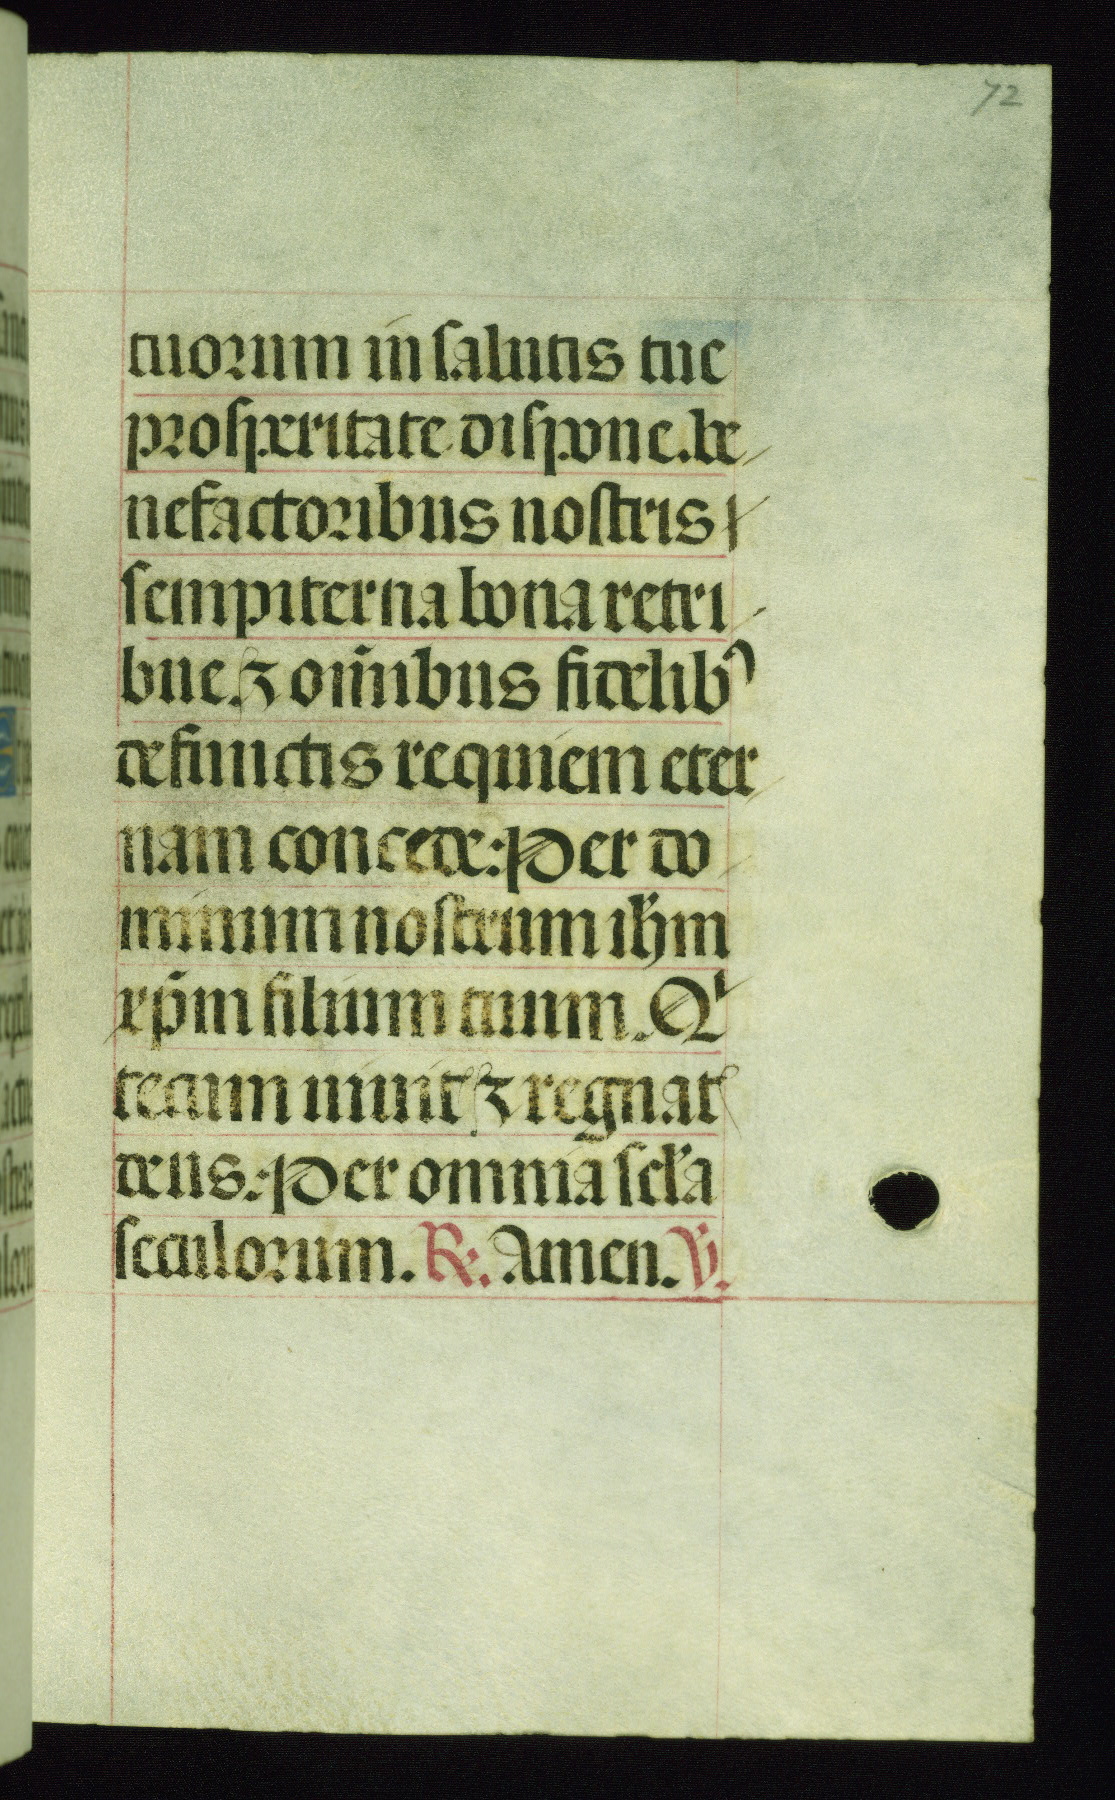 72
tuorum in salutis tue
prosperitate dispone. be
nefactoribus nostris
sempiterna bona retri
bue. ⁊ om̄ibus fidelibꝰ
defunctis requiem eter
nam concede: Per do
minum nostrum ih̄m
xp̄m filium tuum. Qⁱ
tecum uiuit ⁊ regnat
deus: Per omnia scl̄a
seculorum. ℟. Amen. ℣.